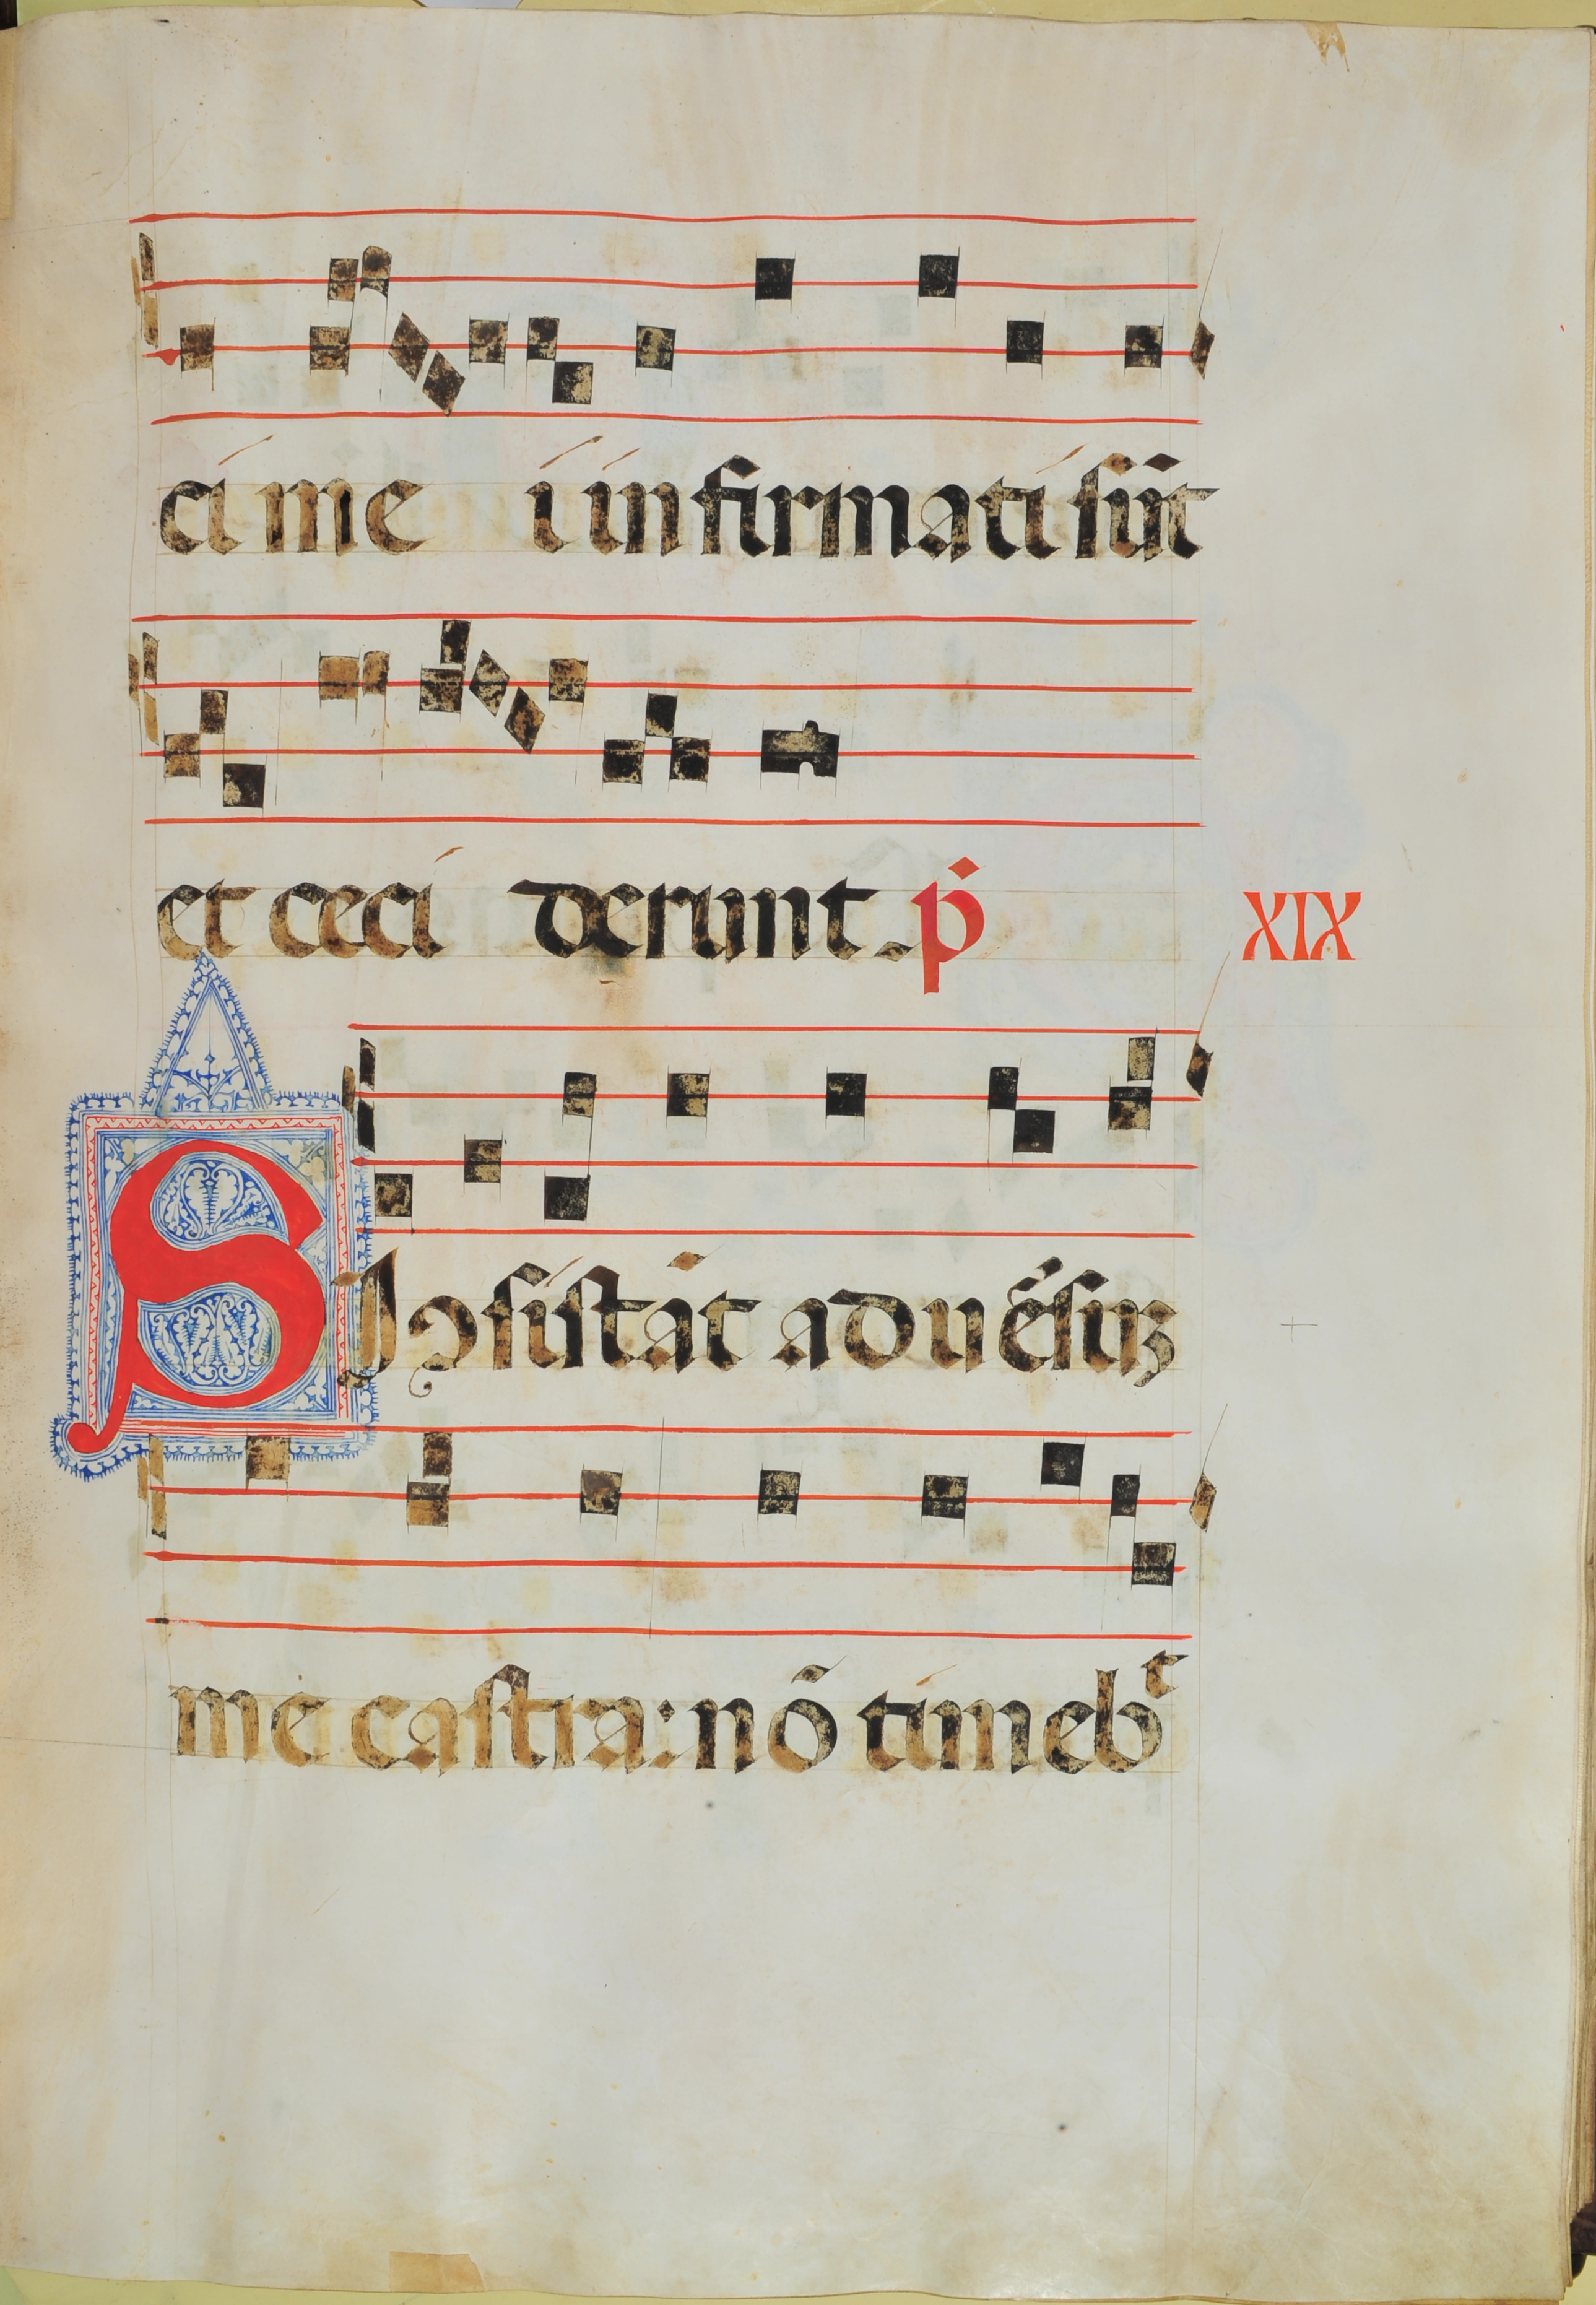 ci me i infirmati sūt
et ceci derunt. p̄
XIX
SI ꝯsistāt aduēsuꝫ
me castra: nō timebᵗ